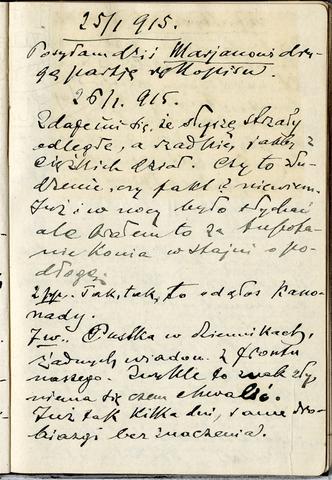 25/I 915.
Posyłam dziś Marjanowi dru-
gą partję rękopisu.
26/I. 915.
Zdaje mi się, że słyszę strzały
odległe, a rzadkie, jakby z
ciężkich dział. Czy to złu-
dzenie, czy fakt? niewiem.
Już i w nocy było słychać
ale brałem to za tupota-
nie konia w stajni o po-
dłogę.
2 pp. Tak, tak, to odgłos kano-
nady.
7 w. Pustka w dziennikach,
żadnych wiadom. z frontu
naszego. Zwykle to znak złych
niema się czem chwalić.
Już tak kilka dni, same dro-
biazgi bez znaczenia.